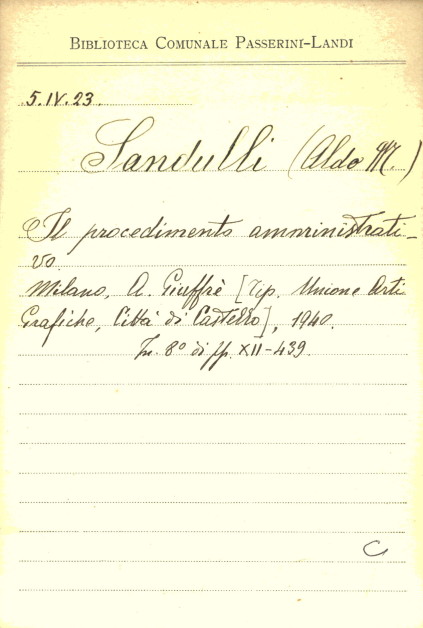 BIBLIOTECA COMUNALE PASSERINI-LANDI
5.IV.23.
Sandulli (Aldo M.)
Il procedimento amministrati-
vo.
Milano, A. Giuffrè [Tip. Unione Arti
Grafiche, Città di Castello], 1940.
In 8° di pp. XII-439.
C